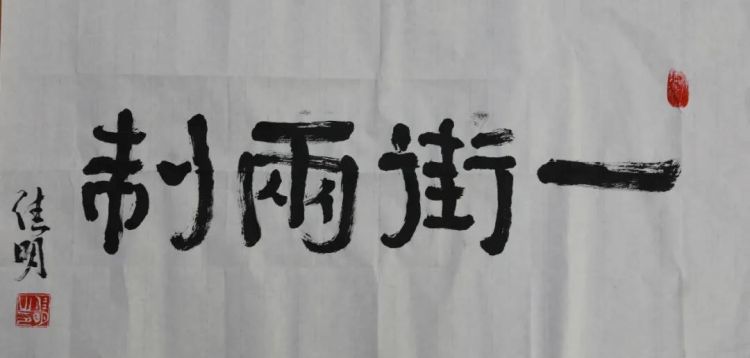 一街兩制
佳明